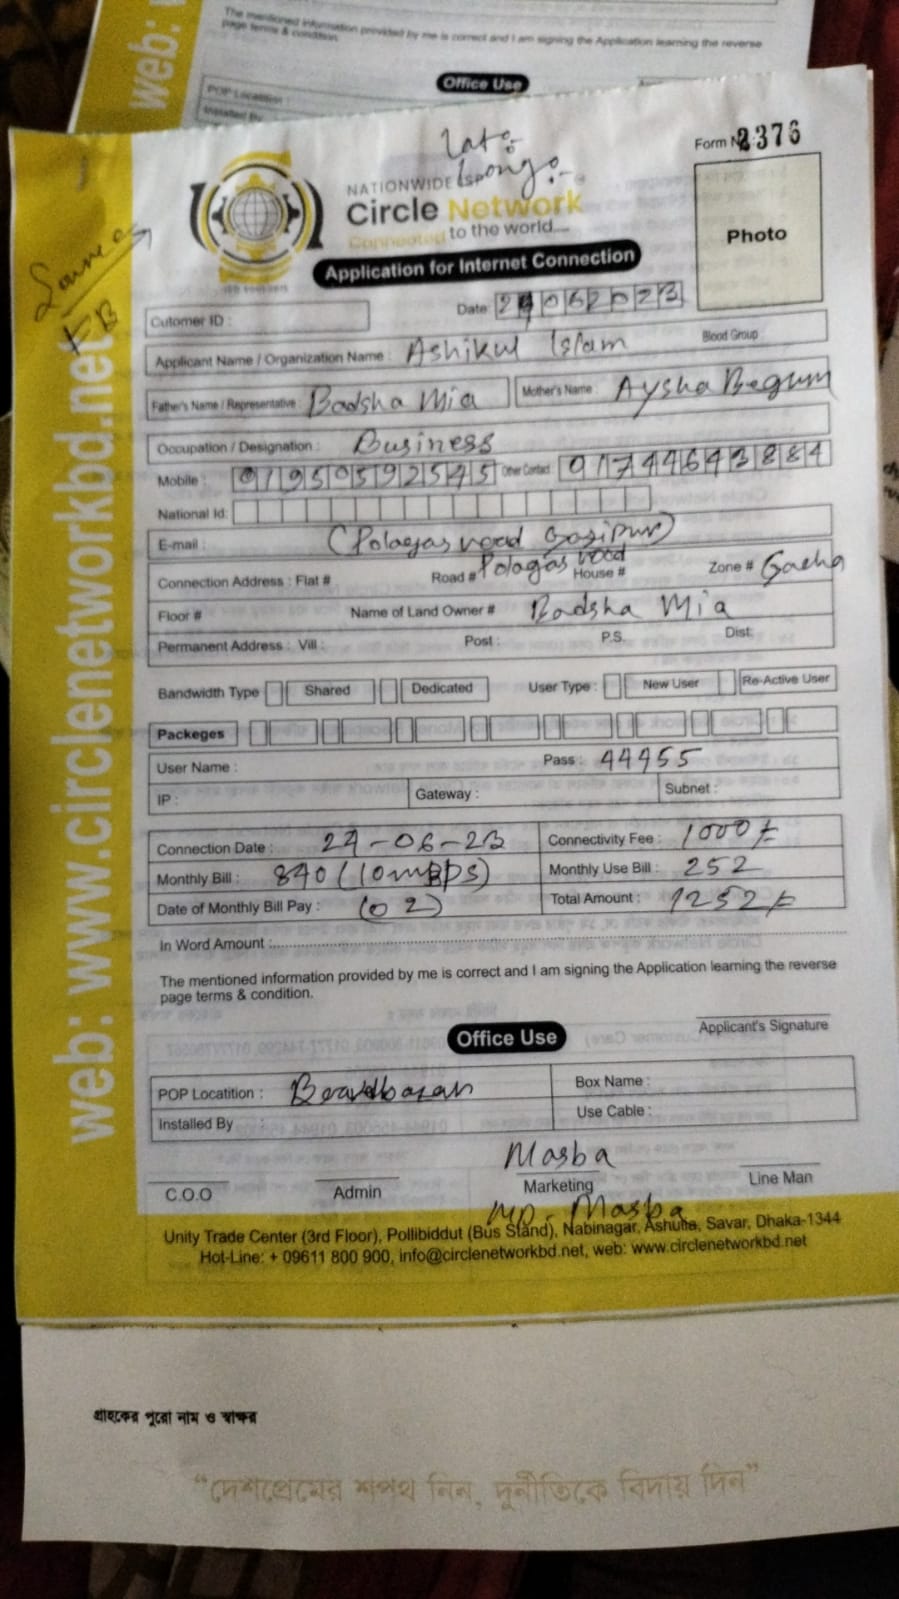 The mentioned information provided by me is correct and I am signing the Application learning the reverse
page terms & condition.
Office Use
POP Locatition :
web: www.circlenetworkbd.net
Form No 2376
Lat:
Long:-
NATIONWIDE ISP
Circle Network
Connected to the world....
Application for Internet Connection
Photo
Cutomer ID :
Date 24062023
Applicant Name / Organization Name : Ashikul Islam Blood Group
Father's Name / Representative : Badsha Mia Mother's Name : Aysha Begum
Occupation / Designation : Business
Mobile : 01950592545 Other Contact : 01744643884
National Id:
E-mail : (Polagas road Gazipur)
Connection Address : Flat # Road # Polagas road House # Zone # Gacha
Floor # Name of Land Owner # Badsha Mia
Permanent Address : Vill : Post : P.S. Dist:
Bandwidth Type Shared Dedicated User Type : New User Re-Active User
Packeges
User Name : Pass : 44455
IP : Gateway : Subnet :
Connection Date : 24-06-23 Connectivity Fee : 1000/=
Monthly Bill : 840 (10mBPS) Monthly Use Bill : 252
Date of Monthly Bill Pay : (02) Total Amount : 1252/=
In Word Amount :
The mentioned information provided by me is correct and I am signing the Application learning the reverse
page terms & condition.
Applicant's Signature
Office Use
POP Locatition : Box Name :
Installed By : Use Cable :
Masba
C.O.O Admin Marketing Line Man
MD. Masba
Unity Trade Center (3rd Floor), Pollibiddut (Bus Stand), Nabinagar, Ashulia, Savar, Dhaka-1344
Hot-Line: + 09611 800 900, info@circlenetworkbd.net, web: www.circlenetworkbd.net
গ্রাহকের পুরো নাম ও স্বাক্ষর
“দেশপ্রেমের শপথ নিন, দুর্নীতিকে বিদায় দিন”